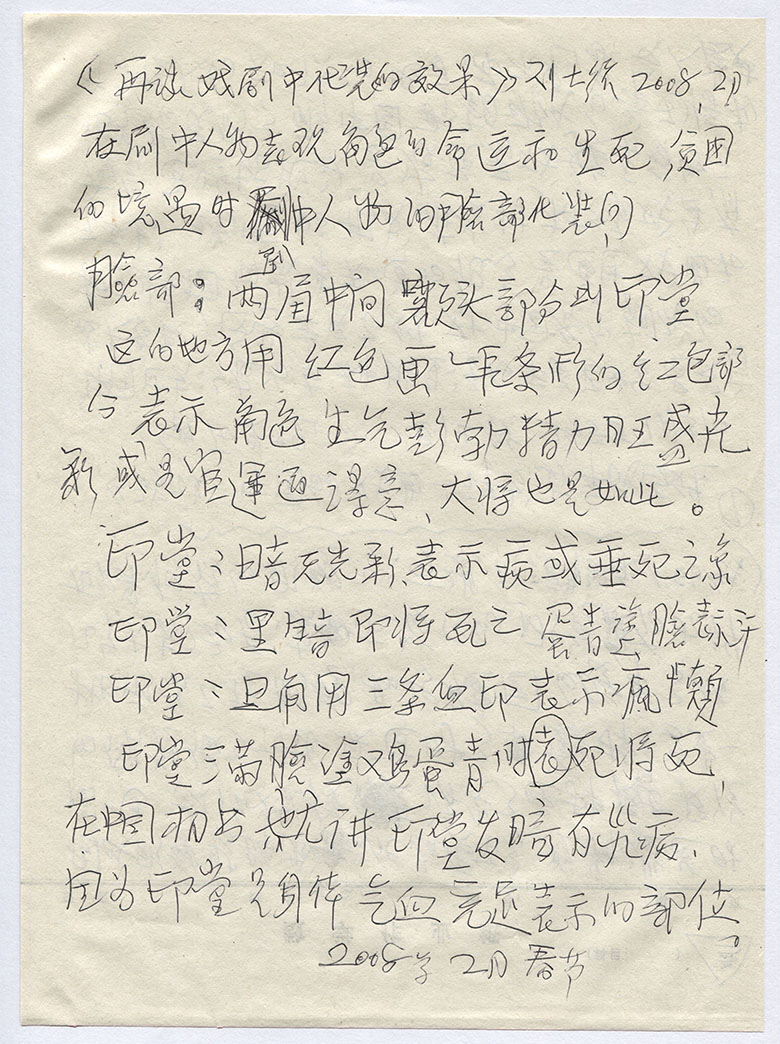 《再谈戏剧中化装的效果》刘士绂 2008,2月
在剧中人物表现角色的命运和生死,贫困
的境遇时剧中人物的脸部化装的
脸部:两眉中间额头部分叫印堂
这的地方用红色画一長条形的红色部
分表示角色生气彭勃精力旺盛光
彩或是官運通得意、大将也是如此。
印堂:暗无光彩、表示病或垂死之象
印堂:黑暗即将死亡 蛋青塗臉表示汗
印堂:旦角用三条血印表示疯懶
印堂:满臉塗鸡蛋青时表死将死,
在中国相书就讲印堂发暗有災病、
因为印堂是身体气血充足表示的部位。
2008年2月春节